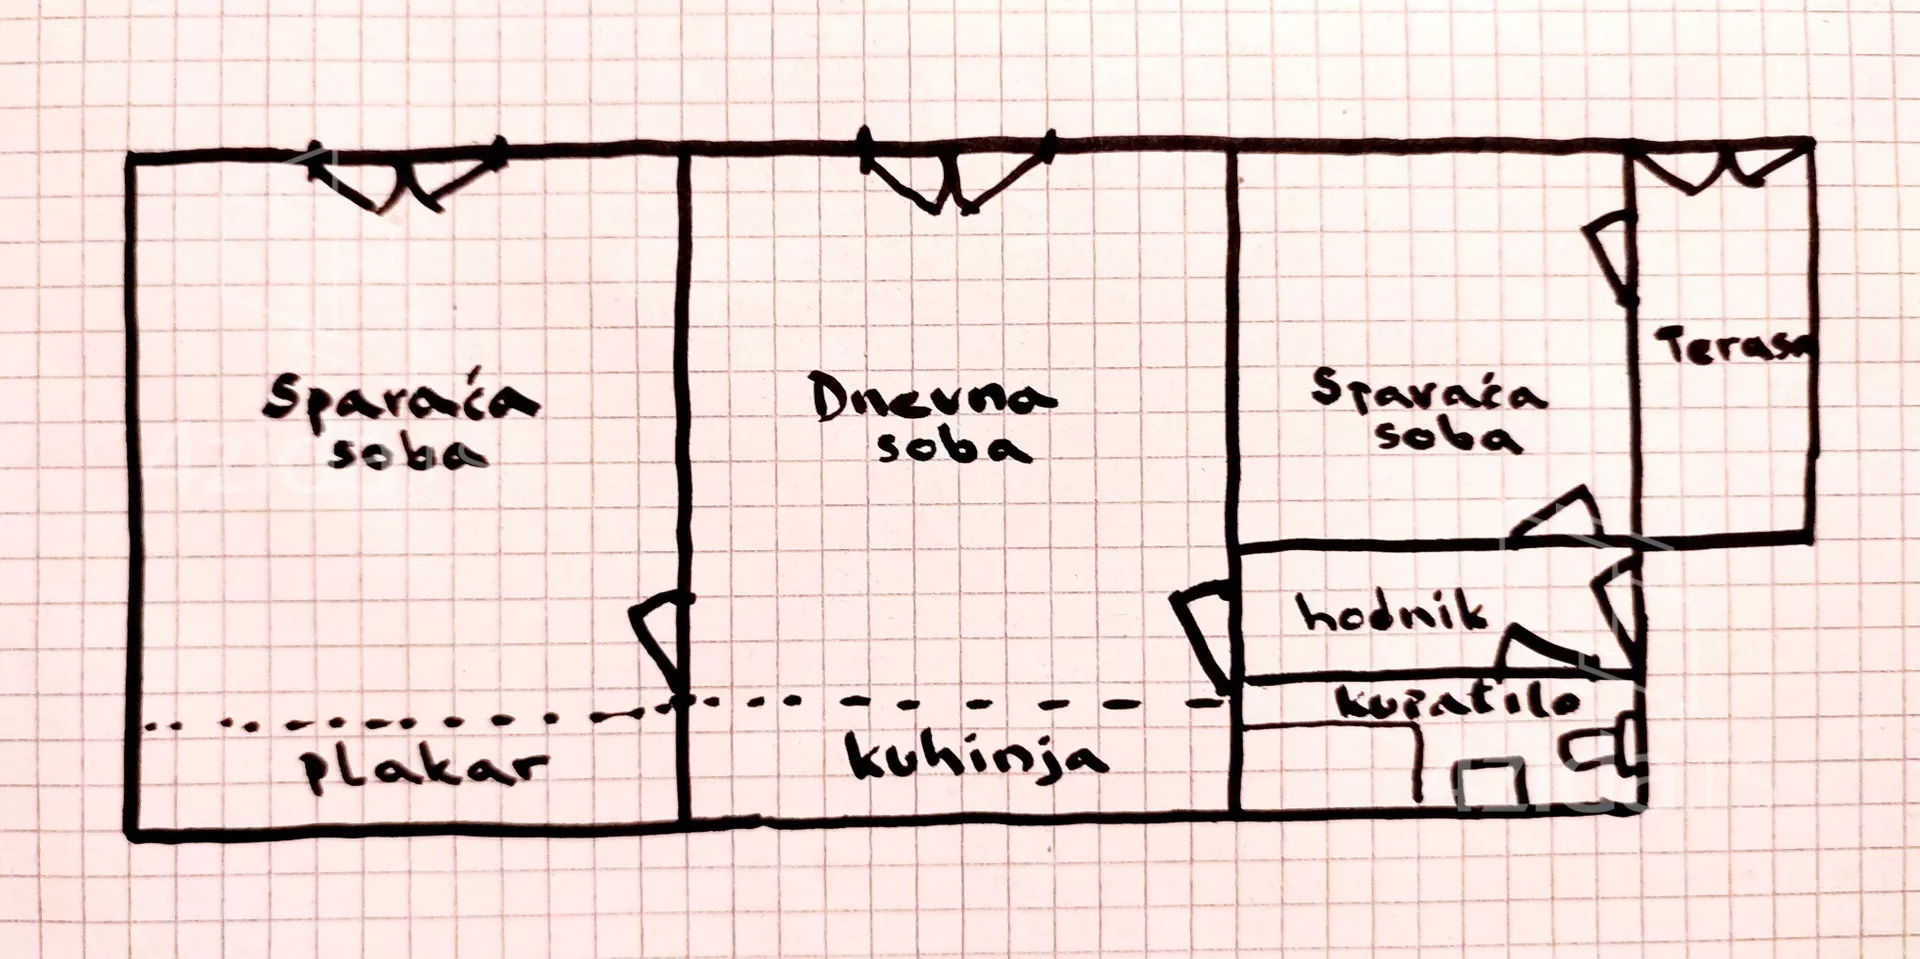 Sparaća
soba
Dnevna
soba
Sparaća
soba
Terasa
hodnik
kupatilo
plakar
kuhinja